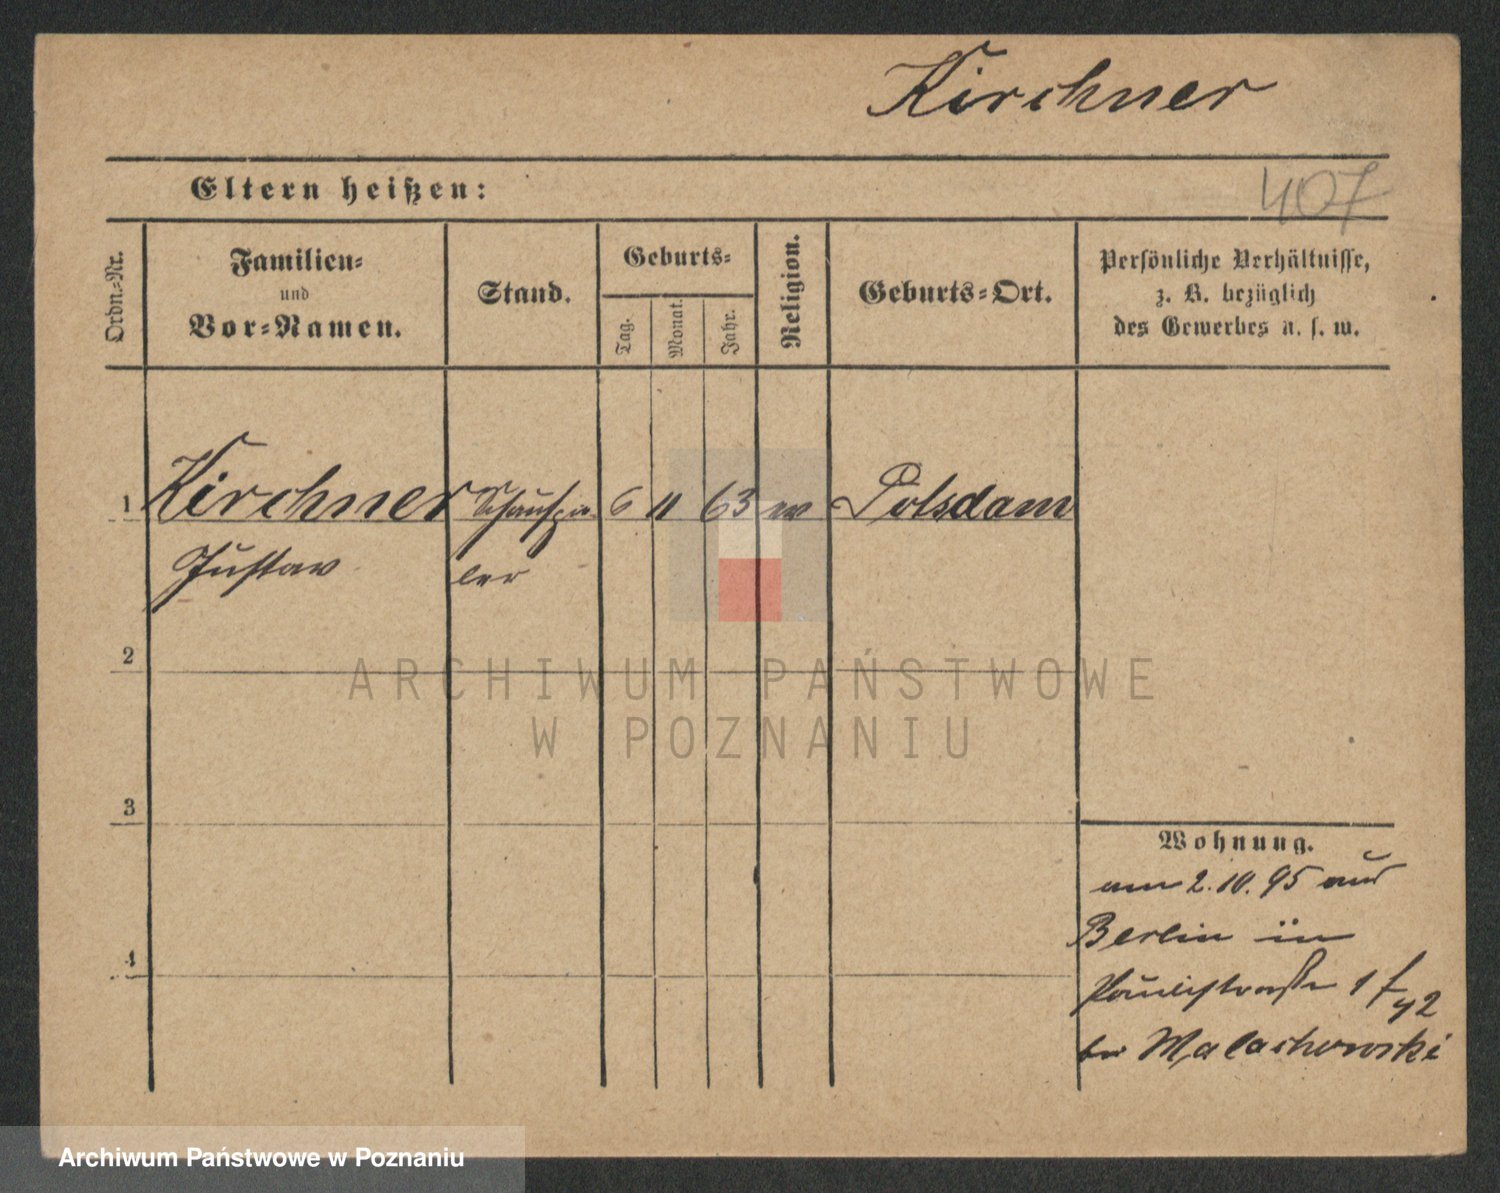 Kirchner
Eltern heißen:
407
Ordn.-Nr.
Familien-
und
Vor-Namen.
Stand.
Geburts-
Tag.
Monat.
Jahr.
Religion.
Geburts-Ort.
Persönliche Verhältnisse,
z. B. bezüglich
des Gewerbes u. s. w.
1
Kirchner
Gustav
Schauspie
ler
6
11
63
Potsdam
2
3
4
Wohnung.
am 2.10.95 aus
Berlin in
Paulistraße 1
bei Malachowski
ARCHIWUM PAŃSTWOWE
W POZNANIU
Archiwum Państwowe w Poznaniu